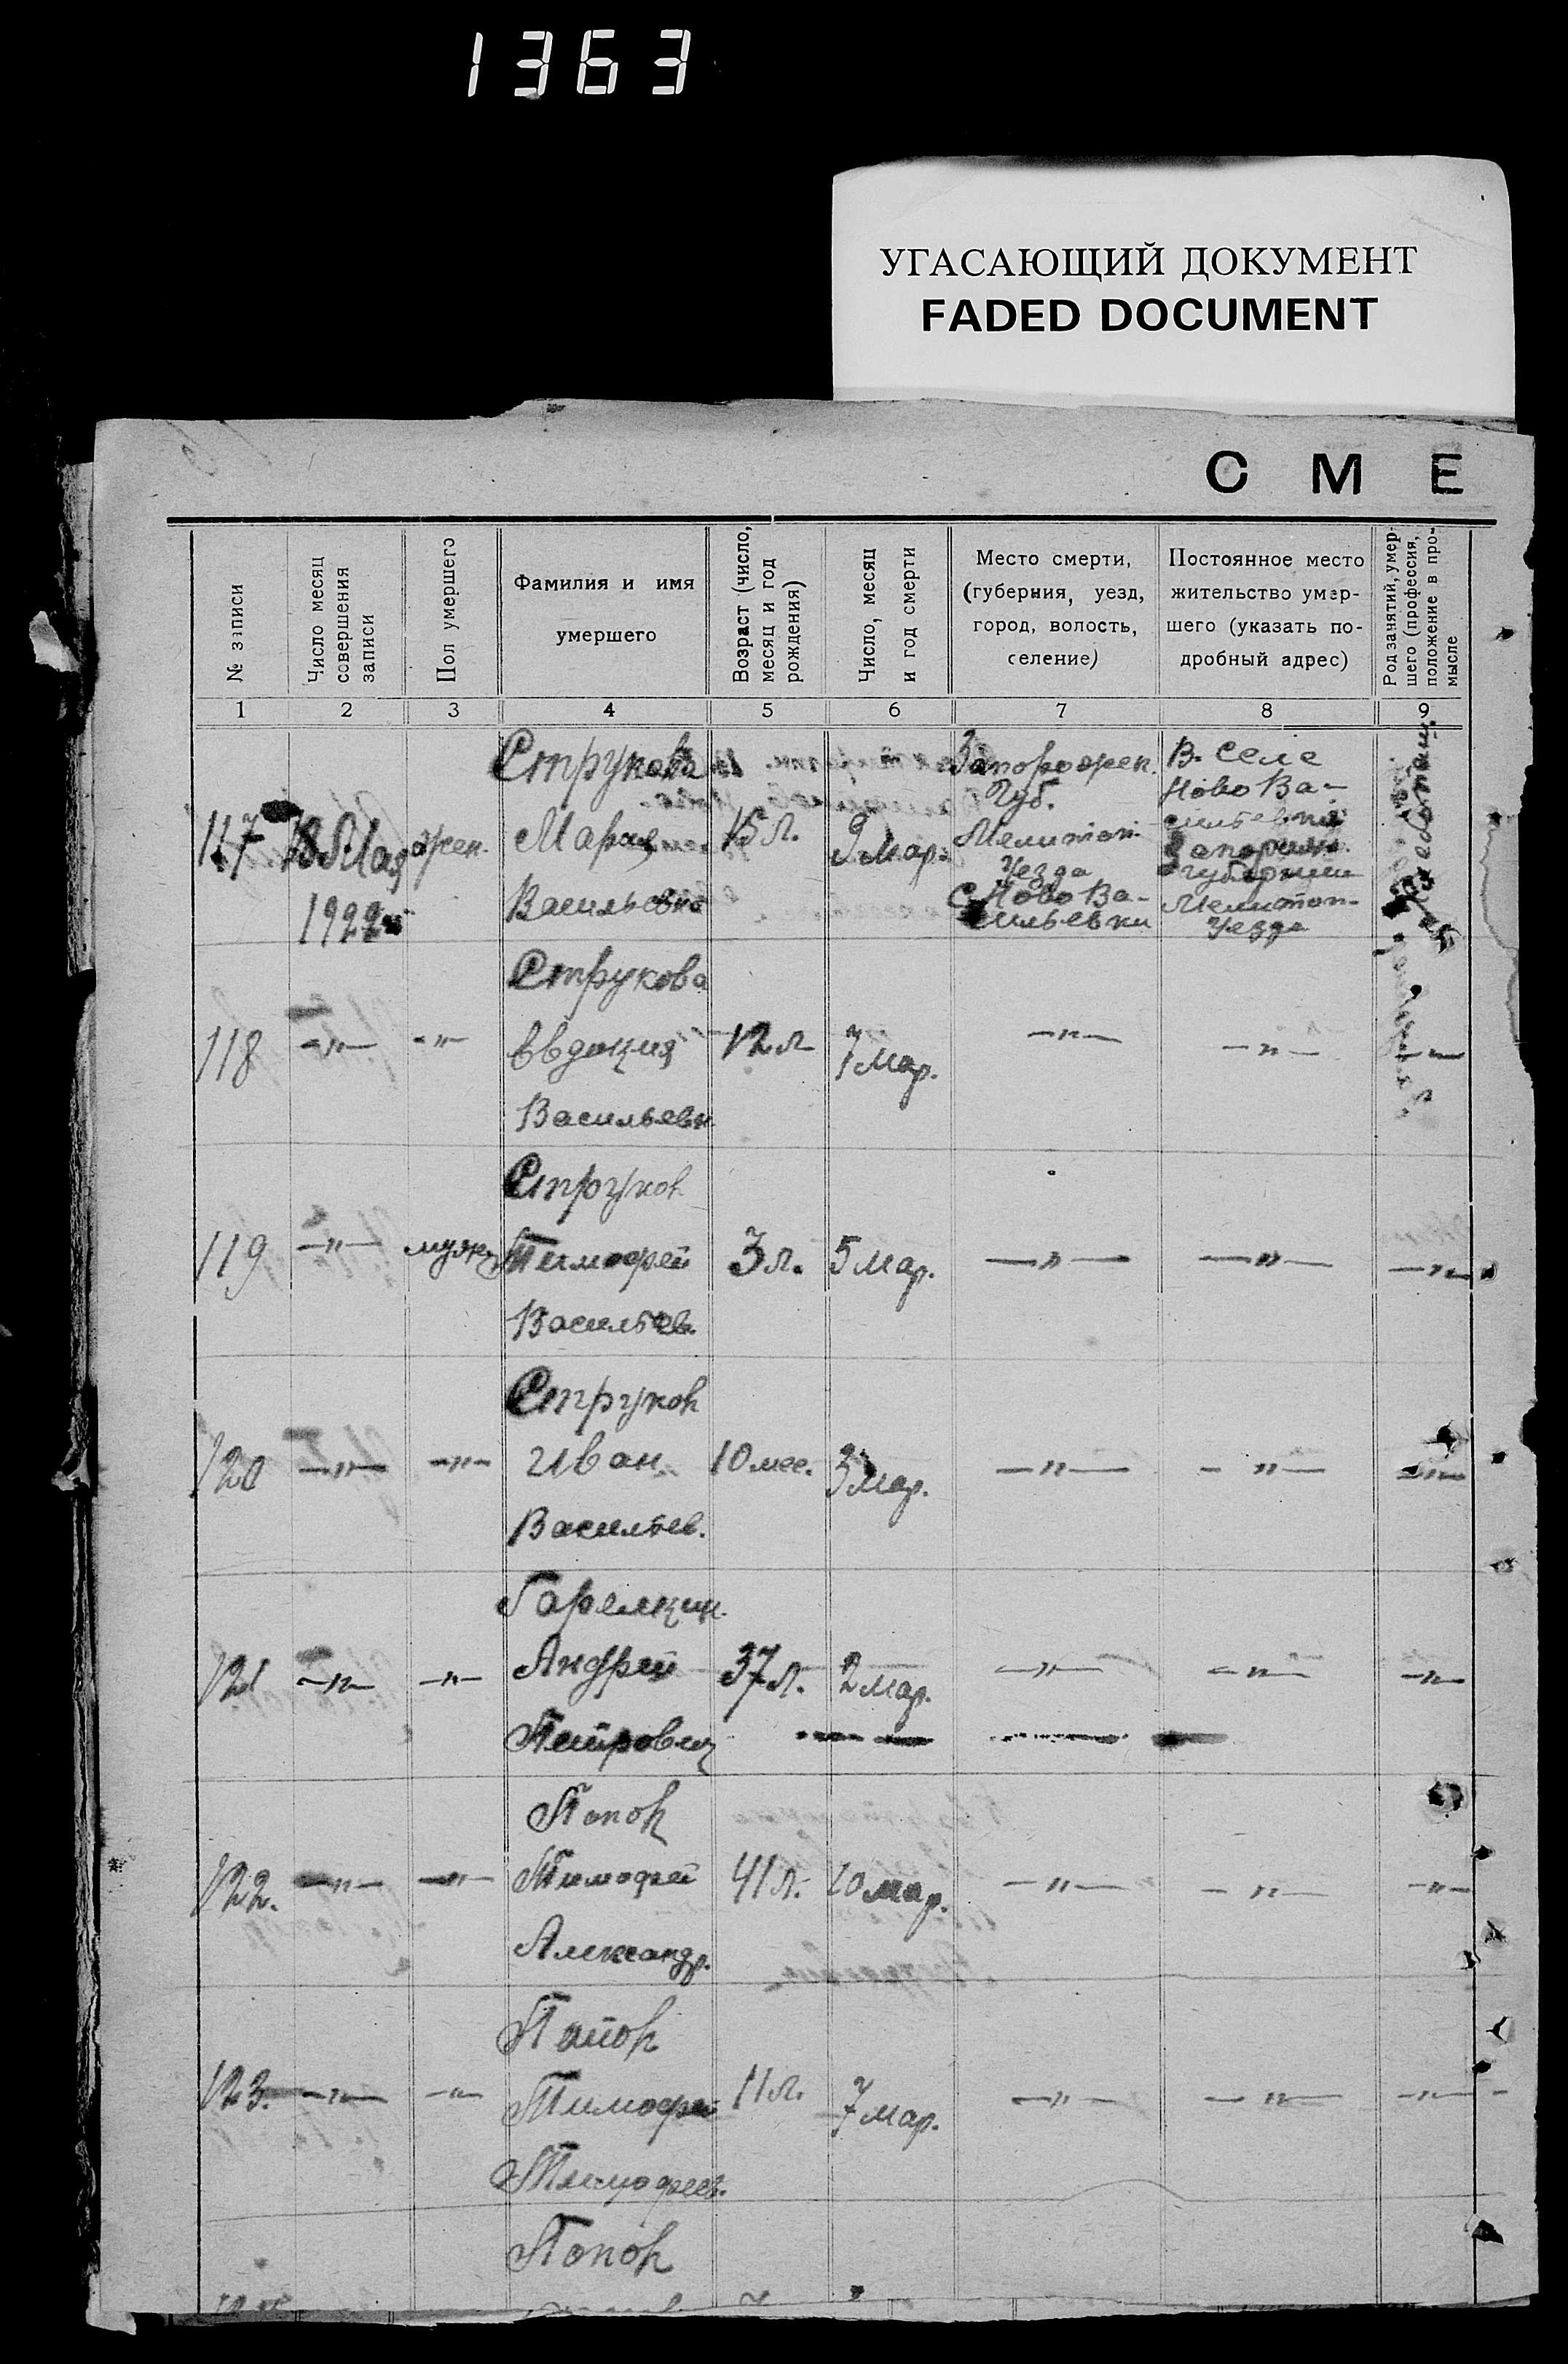 1363
УГАСАЮЩИЙ ДОКУМЕНТ
FADED DOCUMENT
С М Е
№ записи
Число месяц
совершения
записи
Пол умершего
Фамилия и имя
умершего
Возраст (число,
месяц и год
рождения)
Число, месяц
и год смерти
Место смерти,
(губерния, уезд,
город, волость,
селение)
Постоянное место
жительство умер-
шего (указать по-
дробный адрес)
Род занятий, умер-
шего (профессия,
положение в про-
мысле
1 2 3 4 5 6 7 8 9
117
18 Мая
1922
жен.
Струкова
Мария
Васильевна
15 л.
9 мар.
Запорожск.
Губ.
Мелитоп.
Уезда
С. Ново Ва-
сильевки
В. Селе
Ново Ва-
сильевки
Запорож.
губернии
Мелитоп.
Уезда
118 —"— —"—
Струкова
Евдокия
Васильевн
12 л 7 мар. —"— —"— —"—
119 —"— муж.
Струков
Тимофей
Васильев.
3 л. 5 мар. —"— —"— —"—
120 —"— —"—
Струков
Иван
Васильев.
10 мес. 3 мар. —"— —"— —"—
121 —"— —"—
Гарелкин.
Андрей
Петрович
37 л. 2 мар. —"— —"— —"—
122. —"— —"—
Попов
Тимофей
Александр.
41 л. 10 мар. —"— —"— —"—
123. —"— —"—
Попов
Тимофей
Тимофеев.
11 л. 7 мар. —"— —"— —"—
Попов